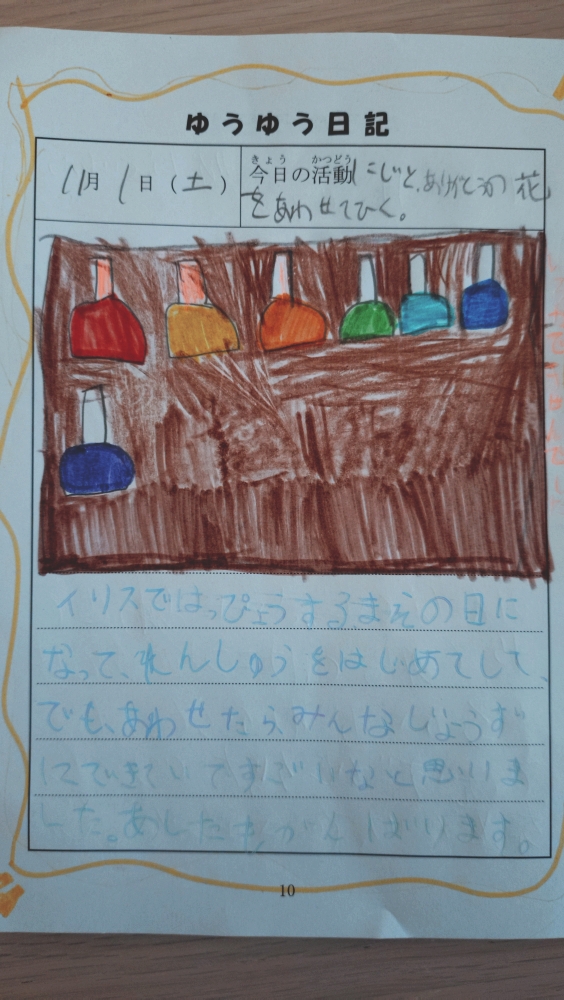 ゆうゆう日記
11月1日(土)
きょう かつどう
今日の活動 にじと、ありがとうの花
をあわせてひく。
イリスではっぴょうするまえの日に
なって、れんしゅうをはじめてして、
でも、あわせたら、みんなじょうず
にできていてすごいなと思いま
した。あしたも、がんばります。
10